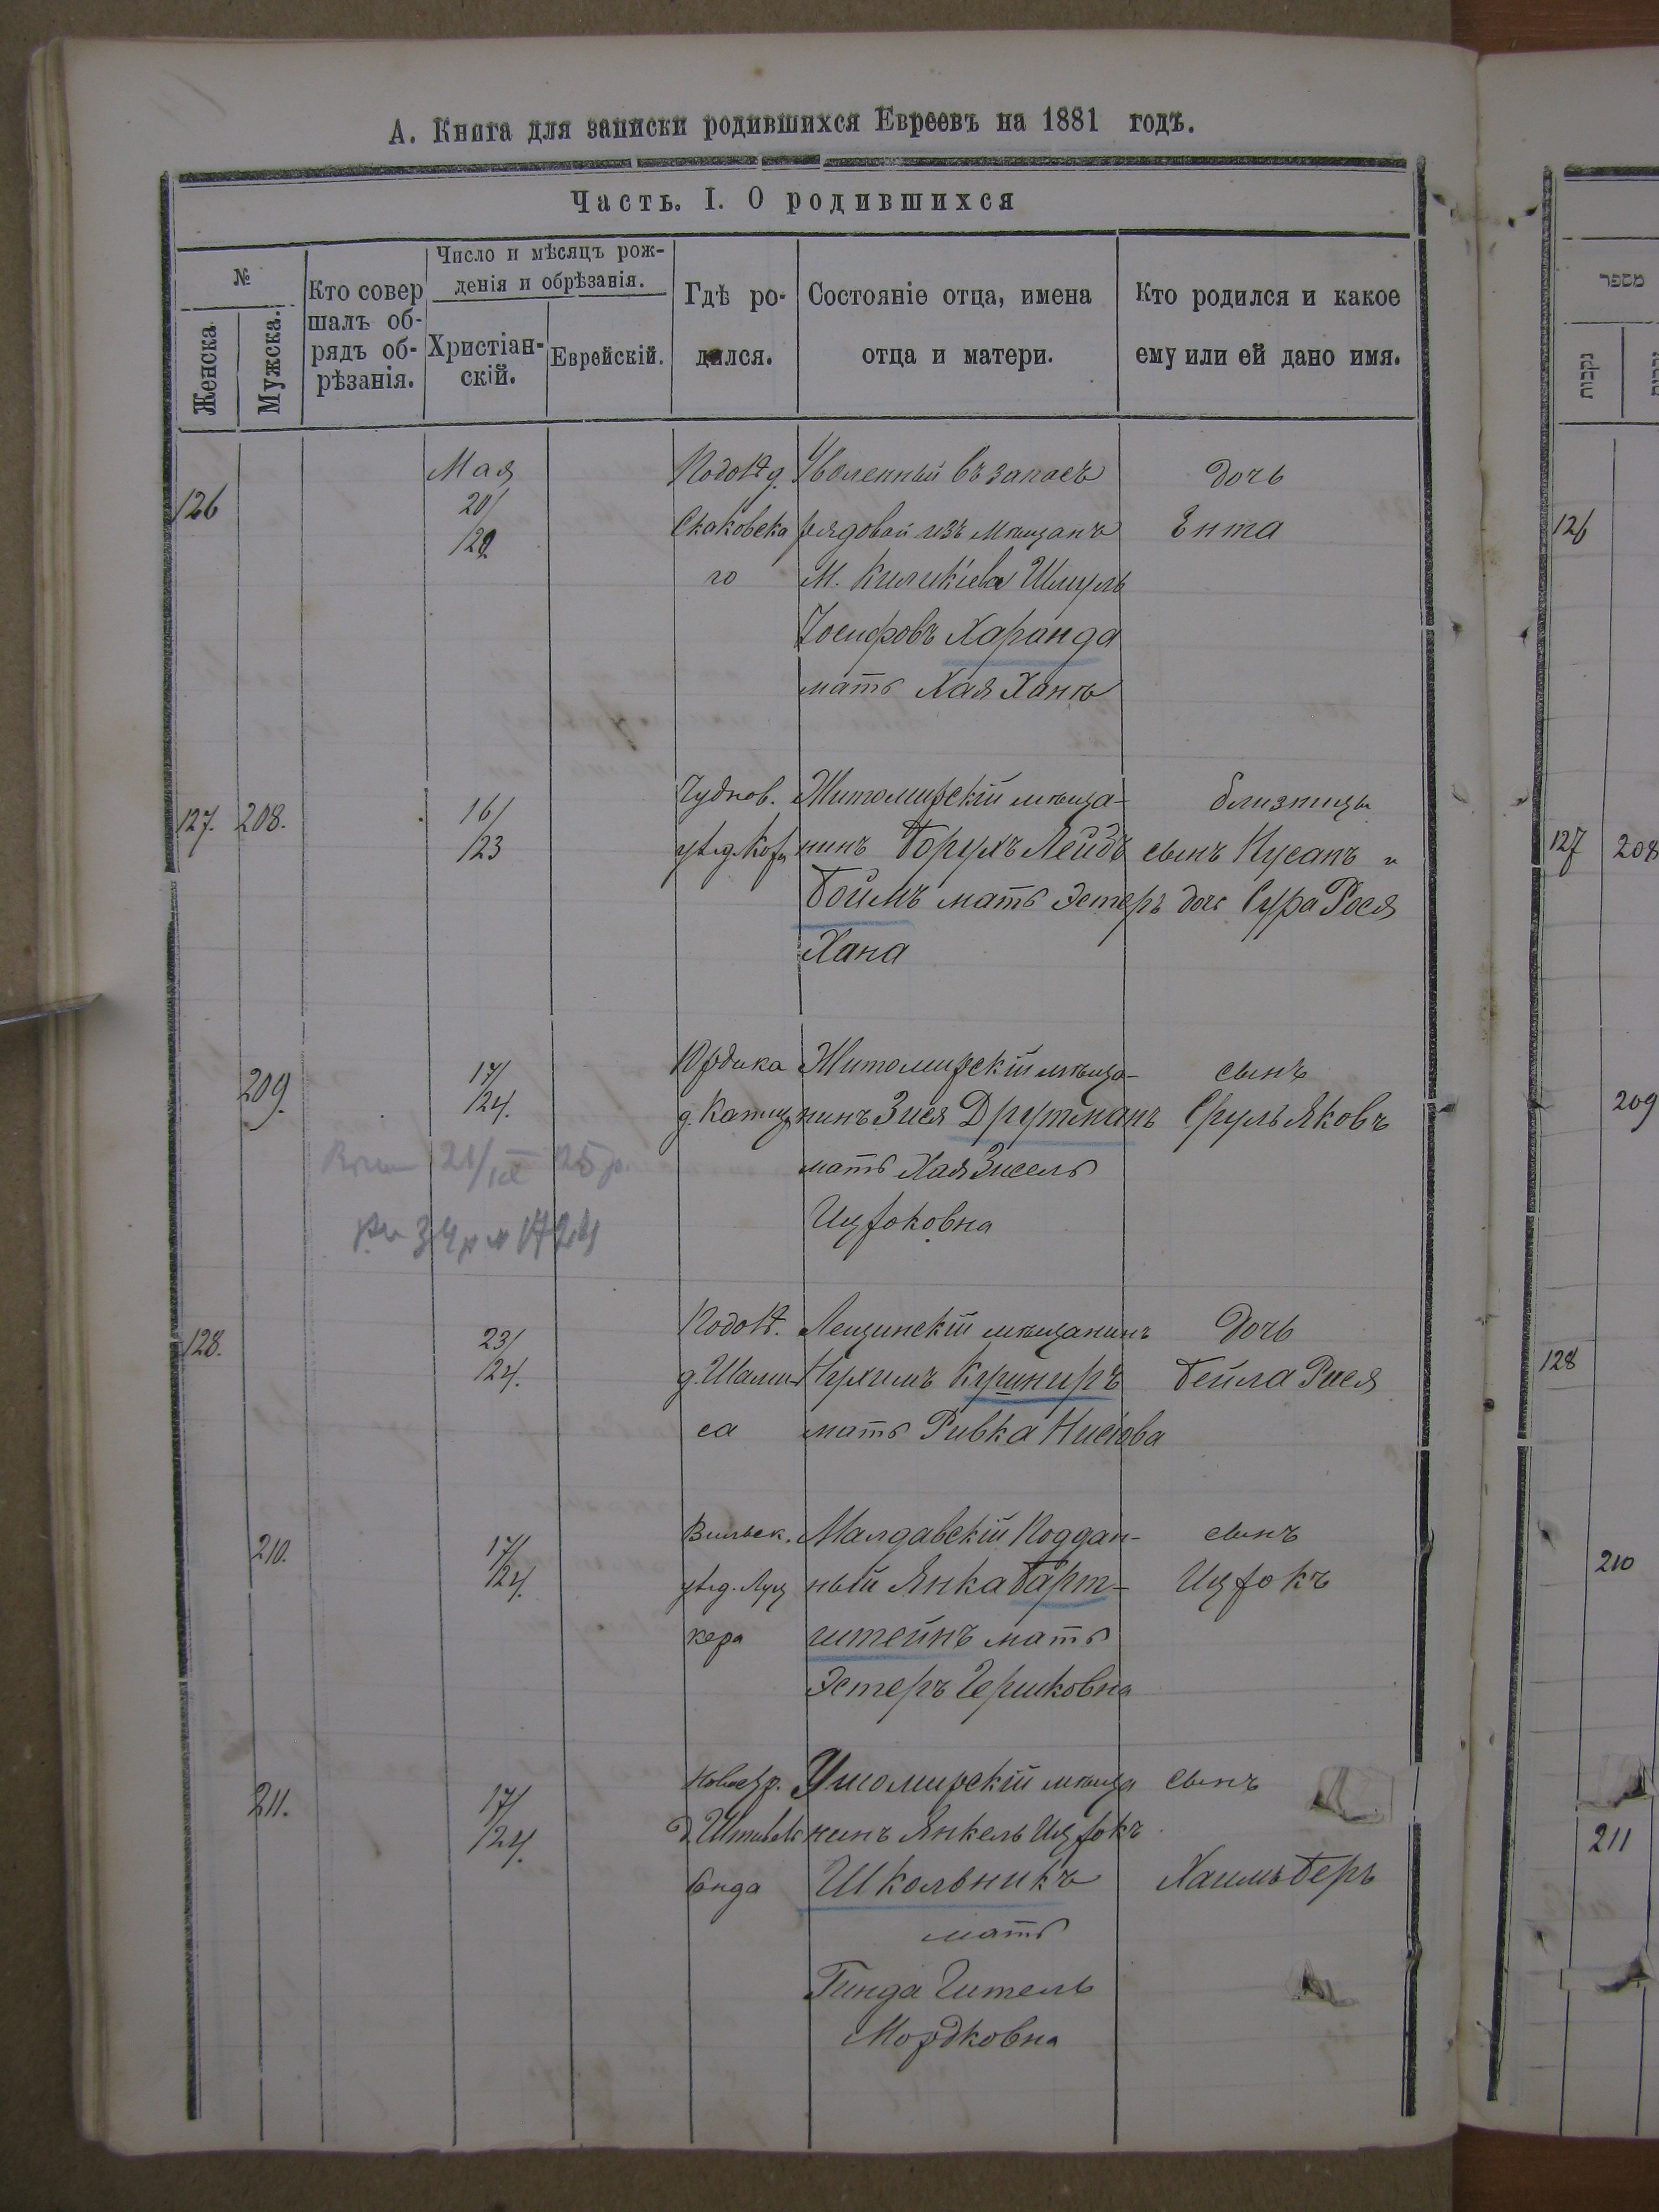 А. Книга для записки родившихся Евреевъ на 1881 годъ.
Часть. I. О родившихся
№
Женска
Мужска.
Кто совер
шалъ об-
рядъ об-
рѣзанія.
Число и мѣсяцъ рож-
денія и обрѣзанія.
Христіан-
скій.
Еврейскій.
Гдѣ ро-
дился.
Состояніе отца, имена
отца и матери.
Кто родился и какое
ему или ей дано имя.
126
Мая
20/
Скаковска
го
Уволенный въ запасъ
рядовой изъ мѣщанъ
М. Киликіева Шмуль
Іосифовъ Харанда
мать Хая Ханѣ
дочь
Ента
127. 208.
16/
/23
Чуднов.
Житомирскій мѣща-
нинъ Борухъ Лейдъ
Боймъ мать Эстеръ
Хана
близнецы
сынъ Нусанъ и
дочь Сура Рося
209.
17/
/24.
Житомирскій мѣща-
нинъ Зися Друтманъ
мать Хая Зисель
Ицкоковна
сынъ
Сруль Яковъ
128.
23/
/24.
д. Шалим
са
Лещинскій мѣщанинъ
Нухимъ Кушниръ
мать Ривка Нисіова
Дочь
Бейла Рися
210.
17/
/24.
Вильск.
кера
Малдавскій Поддан-
ный Янка Барт-
штейнъ мать
Эстеръ Гершковна
сынъ
Ицкокъ
211.
17/
/24.
Ушомирскій мѣща
нинъ Янкель Ицкокъ
Школьникъ
мать
Гинда Гитель
Мордковна
сынъ
Хаимъ Беръ
מספר
נקבות
126
127 208
209
128
210
211